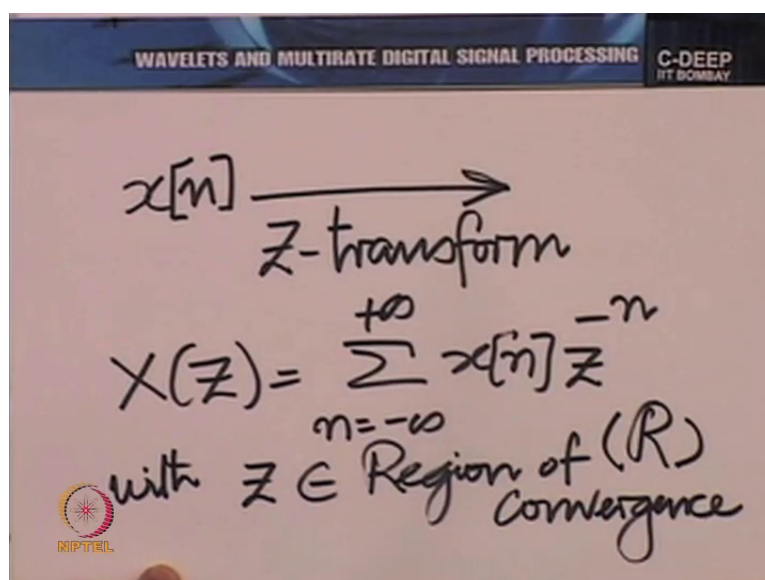 WAVELETS AND MULTIRATE DIGITAL SIGNAL PROCESSING
C-DEEP
IIT BOMBAY
x[n] →
Z-transform
X(Z) = +∞ Σ n=-∞ x[n] Z^-n
with Z ∈ Region of (R)
Convergence
NPTEL